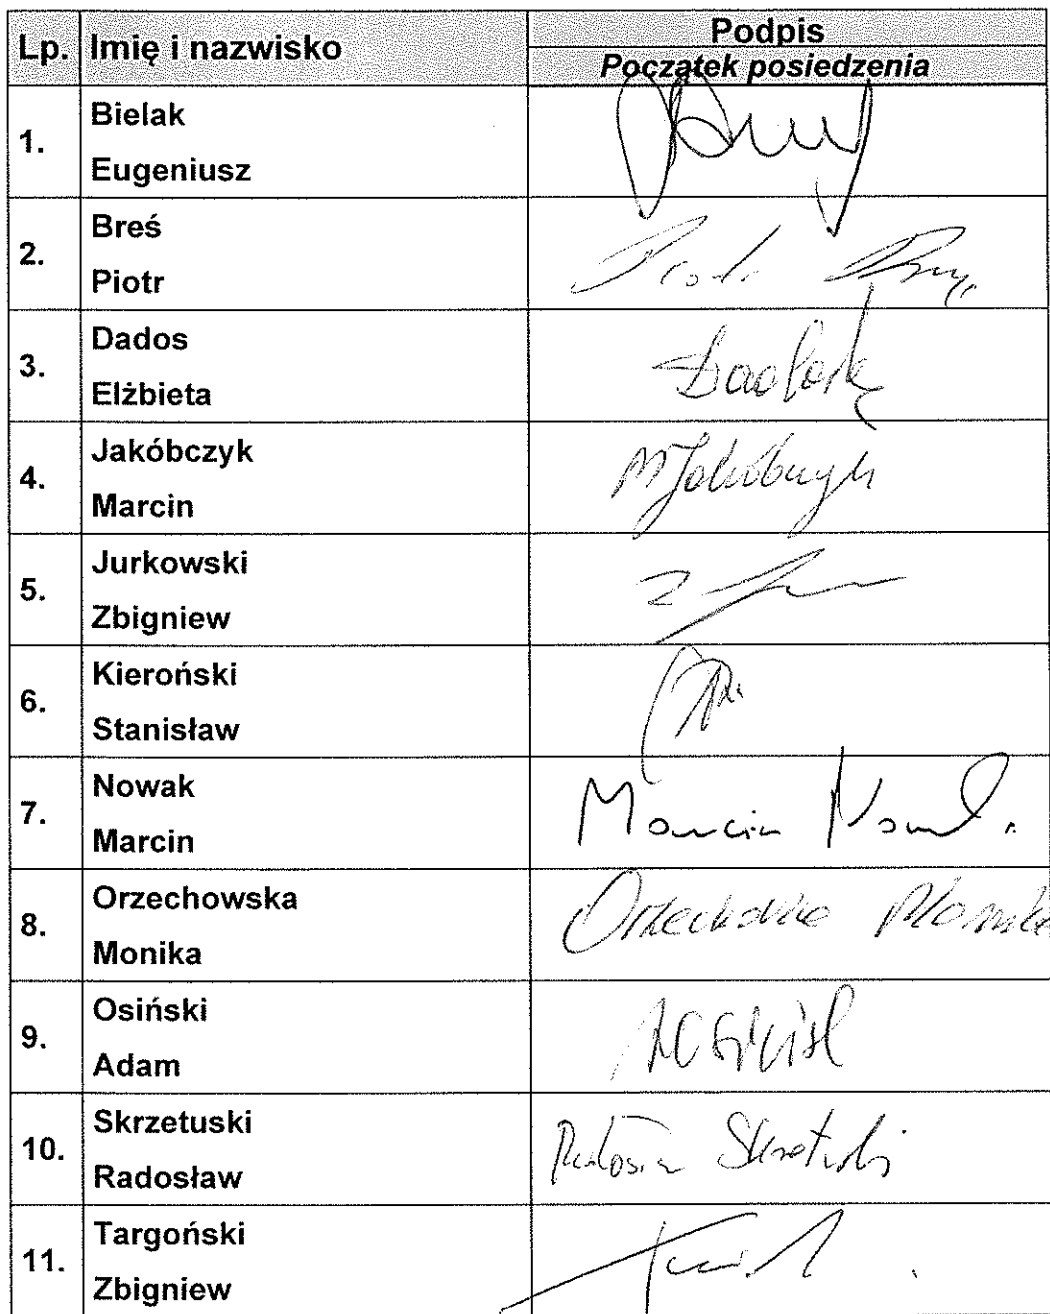 Lp. Imię i nazwisko Podpis
Początek posiedzenia
1. Bielak
Eugeniusz
2. Breś
Piotr
Piotr
3. Dados
Elżbieta
4. Jakóbczyk
Marcin
MJakóbczyk
5. Jurkowski
Zbigniew
6. Kieroński
Stanisław
7. Nowak
Marcin
Marcin Nowak
8. Orzechowska
Monika
Orzechowska Monika
9. Osiński
Adam
10. Skrzetuski
Radosław
Radosław Skrzetuski
11. Targoński
Zbigniew